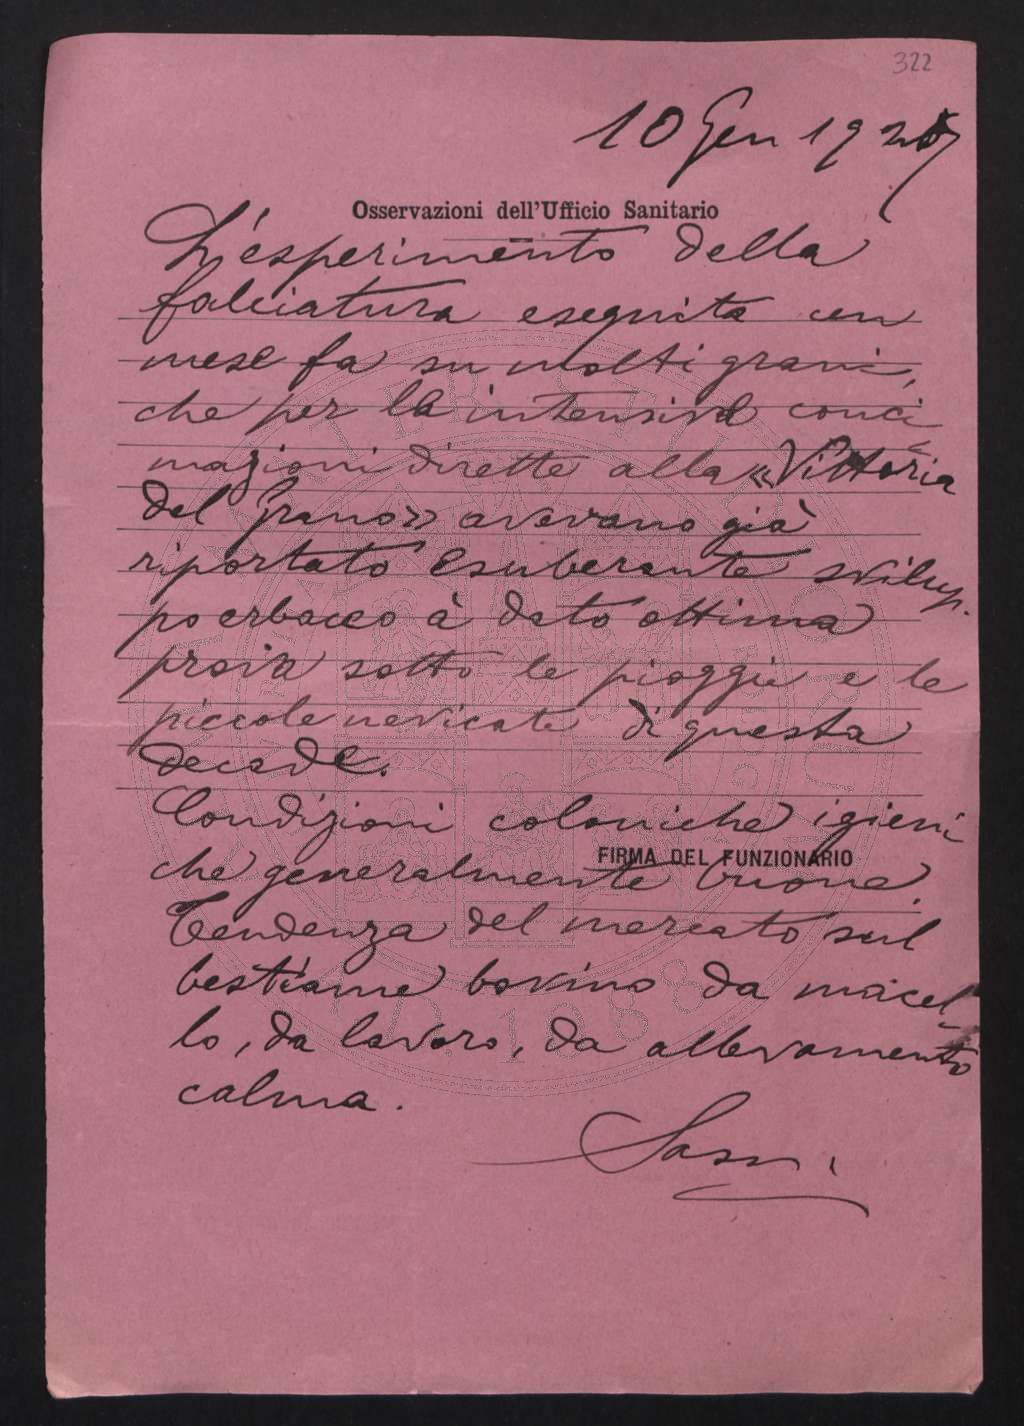 322
10 Gen 1927
Osservazioni dell'Ufficio Sanitario
L'esperimento della
falciatura eseguita un
mese fa su molti grani,
che per le intensive conci
mazioni dirette alla «Vittoria
del Grano» avevano già
riportato esuberante svilup-
po erbaceo à dato ottima
prova sotto le pioggie e le
piccole nevicate di questa
decade.
Condizioni coloniche igieni
FIRMA DEL FUNZIONARIO
che generalmente buone.
Tendenza del mercato sul
bestiame bovino da macel-
lo, da lavoro, da allevamento
calma.
Sassi